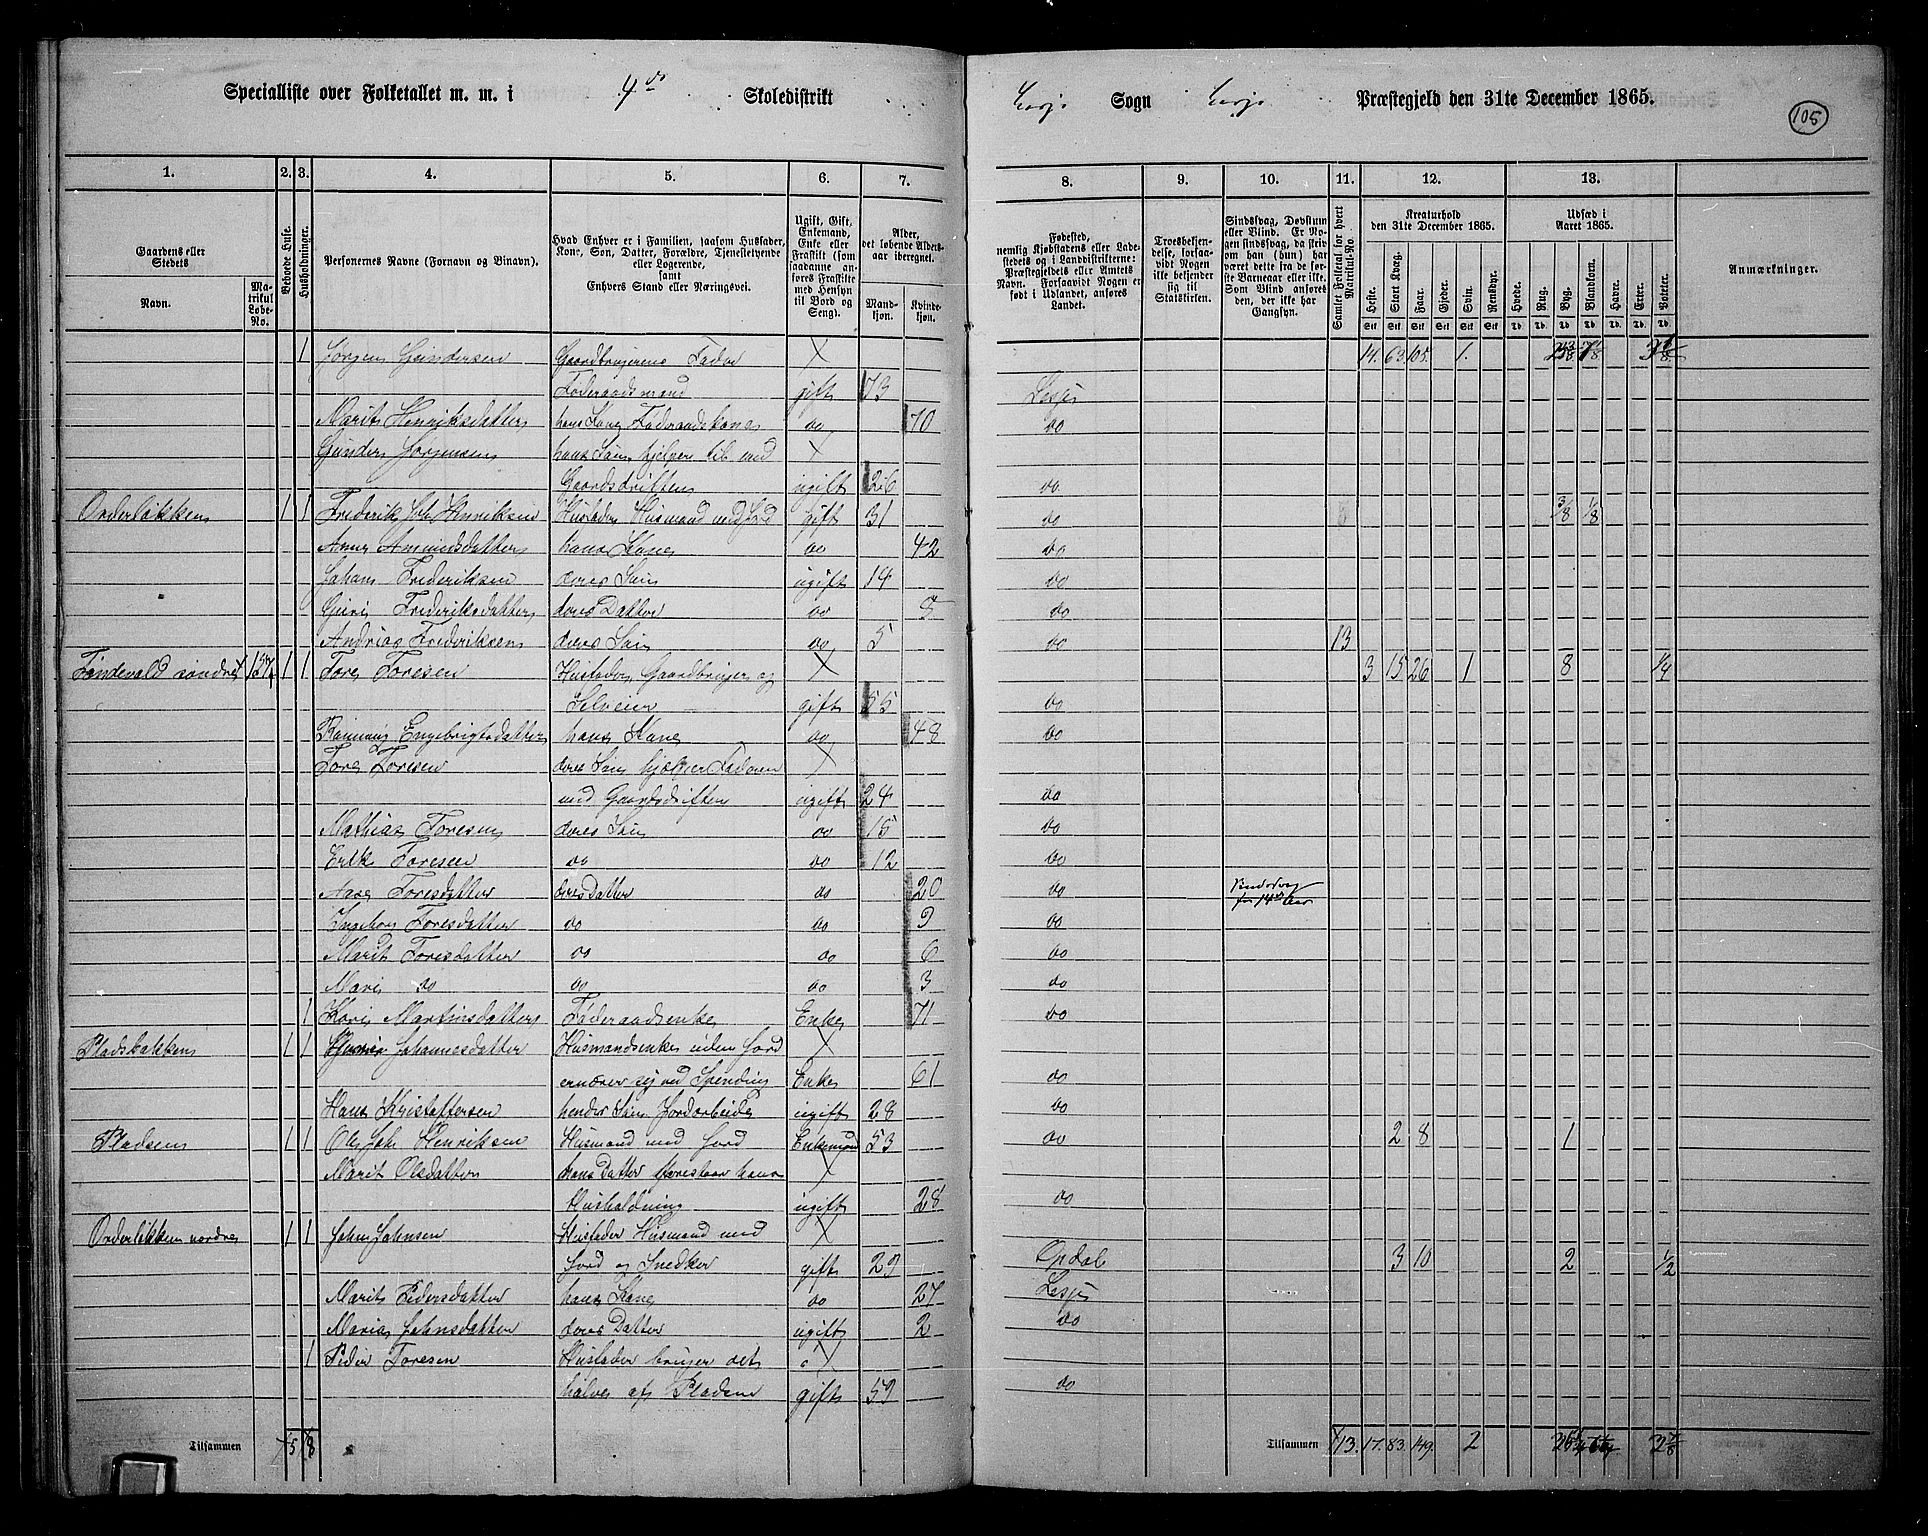 Specialliste over Folketallet m. m. i 4de Skoledistrikt Lesje Sogn Lesje Præstegjeld den 31te December 1865.
105
1. 2. 3. 4. 5. 6. 7. 8. 9. 10. 11. 12. 13.
Gaardens eller Stedets
Navn.
Matrikul Løbe-No.
Beboede Huse.
Husholdninger.
Personernes Navne (Fornavn og Binavn).
Hvad Enhver er i Familien, saasom Husfader, Kone, Søn, Datter, Forældre, Tjenestetyende eller Logerende, samt Enhvers Stand eller Næringsvei.
Ugift, Gift, Enkemand, Enke eller Fraskilt (som saadanne anføres Fraskilte med Hensyn til Bord og Seng).
Alder, det løbende Aldersaar iberegnet.
Mandkjøn.
Kvindekjøn.
Fødested, nemlig Kjøbstadens eller Ladestedets og i Landdistrikterne: Præstegjeldets eller Amtets Navn. Forsaavidt Nogen er født i Udlandet, anføres Landet.
Troesbekjendelse, forsaavidt Nogen ikke bekjender sig til Statskirken.
Sindssvag, Døvstum eller Blind. Er Nogen sindssvag, da skriv om han (hun) har været dette fra de første Barneaar eller ikke. Som Blind anføres den, der ikke har Gangsyn.
Samlet Folketal for hvert Matrikul-No.
Kreaturhold den 31te December 1865.
Heste. Stort Kvæg. Faar. Gjeder. Svin. Rensdyr.
Udsæd i Aaret 1865.
Hvede. Rug. Byg. Blandkorn. Havre. Erter. Poteter.
Anmærkninger.
1 Jørgen Gundersen Gaardbrugerens Fader × 14. 63. 105. 1.
Føderaadsmand gift 73 Lesje
Marit Henriksdatter hans Kone Føderaadskone do 70 do
Gunder Jørgensen hans Søn hjelper til med ×
Gaardsdriften ugift 26 do
Orderløkken 1 1 Frederik Joh Henriksen Husfader Husmand med Jord gift 31 do 3/8 1/8
Anne Amundsdatter hans Kone do 42 do
Johans Frederiksen deres Søn ugift 14 do
Guri Frederiksdatter deres Datter do 8 do
Andrias Frederiksen deres Søn do 5 do 13
Tøndevold søndre 137 1 1 Tore Toresen Husfader Gaardbruger og × 3 15 26 1 8 1/4
Selveier gift 55 do
Ramnug Engebrigtsdatter hans Kone do 48 do
Tore Toresen deres Søn hjelper Faderen ×
med Gaardsdriften ugift 24 do
Mathias Toresen deres Søn do 15 do
Erik Toresen do do 12 do
Aase Toresdatter deres Datter do 20 do Sindssvag fra 14de Aar
Ingeborg Toresdatter do do 9 do
Marit Toresdatter do do 6 do
Mari do do do 3 do
1 Kari Martinsdatter Føderaadsenke Enke 71 do
Pladsbakken 1 1 Johannesdatter Husmandsenke uden Jord ×
ernærer sig ved Spinding Enke 61 do
Hans Kristoffersen hendes Søn Jordarbeider ugift 28 do
Pladsen 1 1 Ole Joh Henriksen Husmand med Jord Enkemand 53 do 2 8 1
Marit Olsdatter hans Datter forestaar hans ×
Husholdning ugift 28 do
Orderløkken nordre 1 1 John Johnsen Husfader Husmand med ×
Jord og Snedker gift 29 Opdal 3 10 2 1/2
Marit Pedersdatter hans Kone do 27 Lesje
Maria Johnsdatter deres Datter ugift 2 do
1 Peder Toresen Husfader bruger det ×
halve af Pladsen gift 59 do
Tilsammen 5 8 Tilsammen 13. 17. 83. 149. 2